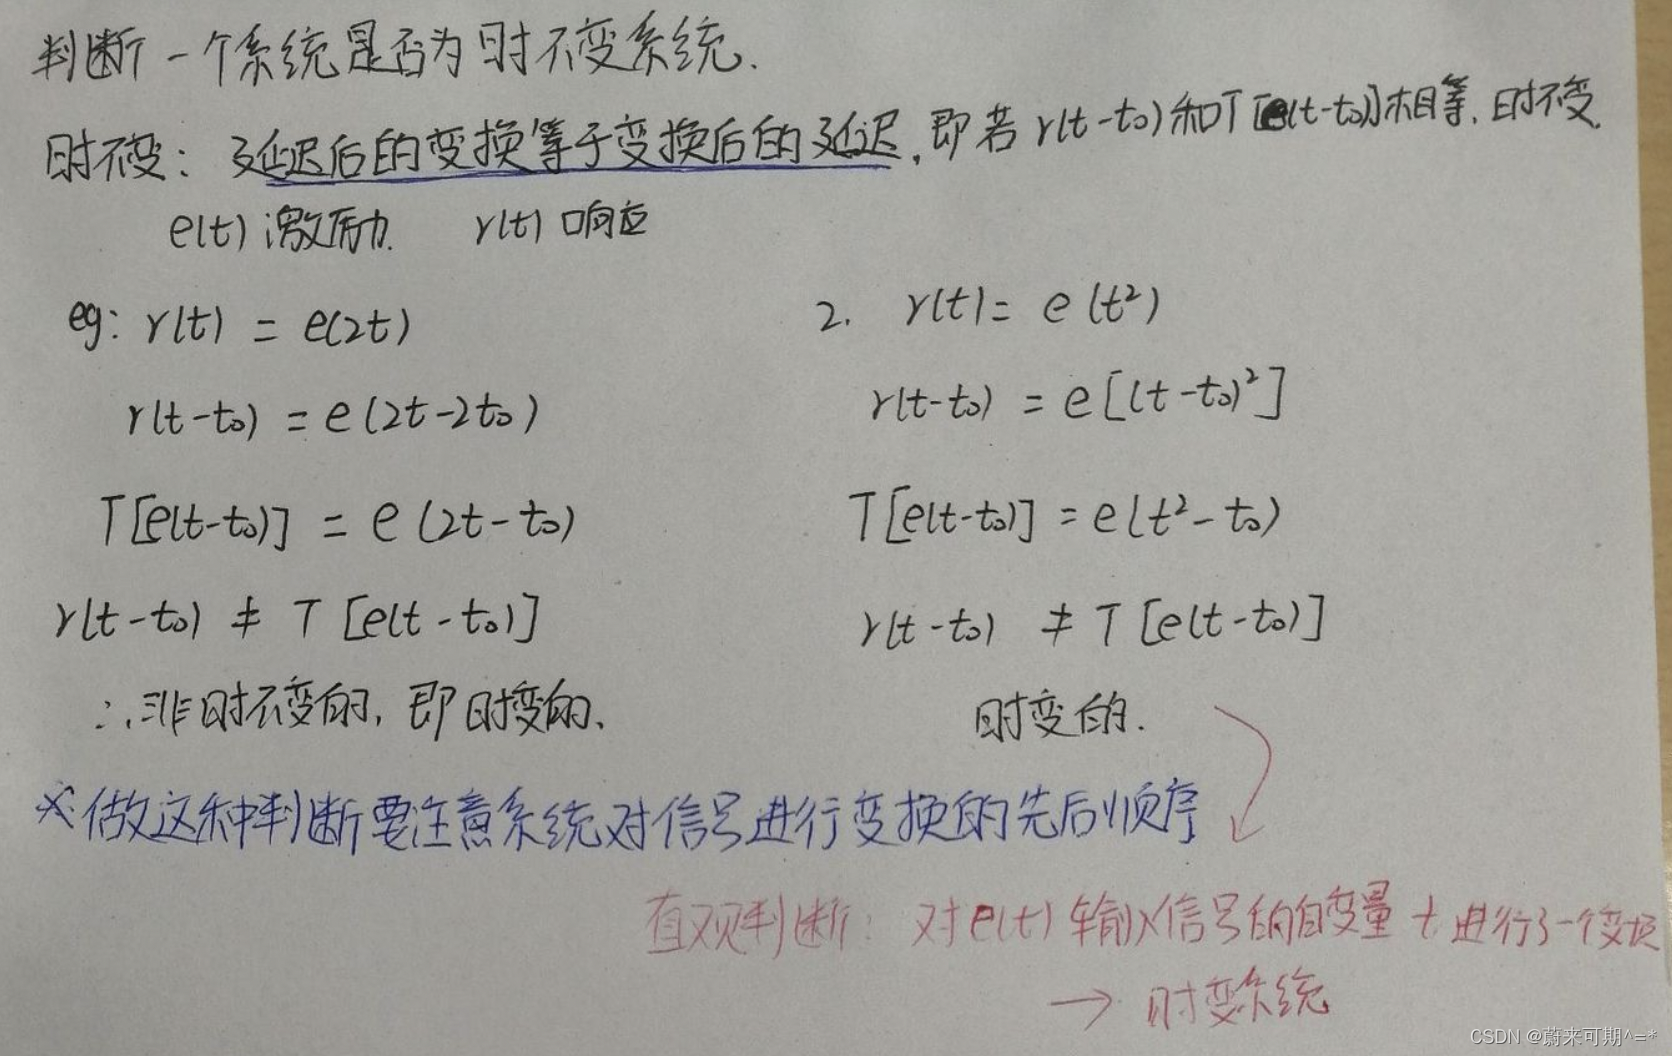 判断一个系统是否为时不变系统.
时不变: 延迟后的变换等于变换后的延迟,即若 r(t-t₀)和T[e(t-t₀)]相等,时不变.
e(t) 激励. r(t) 响应
eg: r(t) = e(2t)
r(t-t₀) = e(2t-2t₀)
T[e(t-t₀)] = e(2t-t₀)
r(t-t₀) ≠ T [e(t-t₀)]
∴非时不变的, 即时变的.
2. r(t) = e(t²)
r(t-t₀) = e[(t-t₀)²]
T[e(t-t₀)] = e(t²-t₀)
r(t-t₀) ≠ T [e(t-t₀)]
时变的.
※做这种判断要注意系统对信号进行变换的先后顺序
直观判断: 对e(t)输入信号的自变量 t 进行了一个变换
→ 时变系统
CSDN @蔚来可期^=*